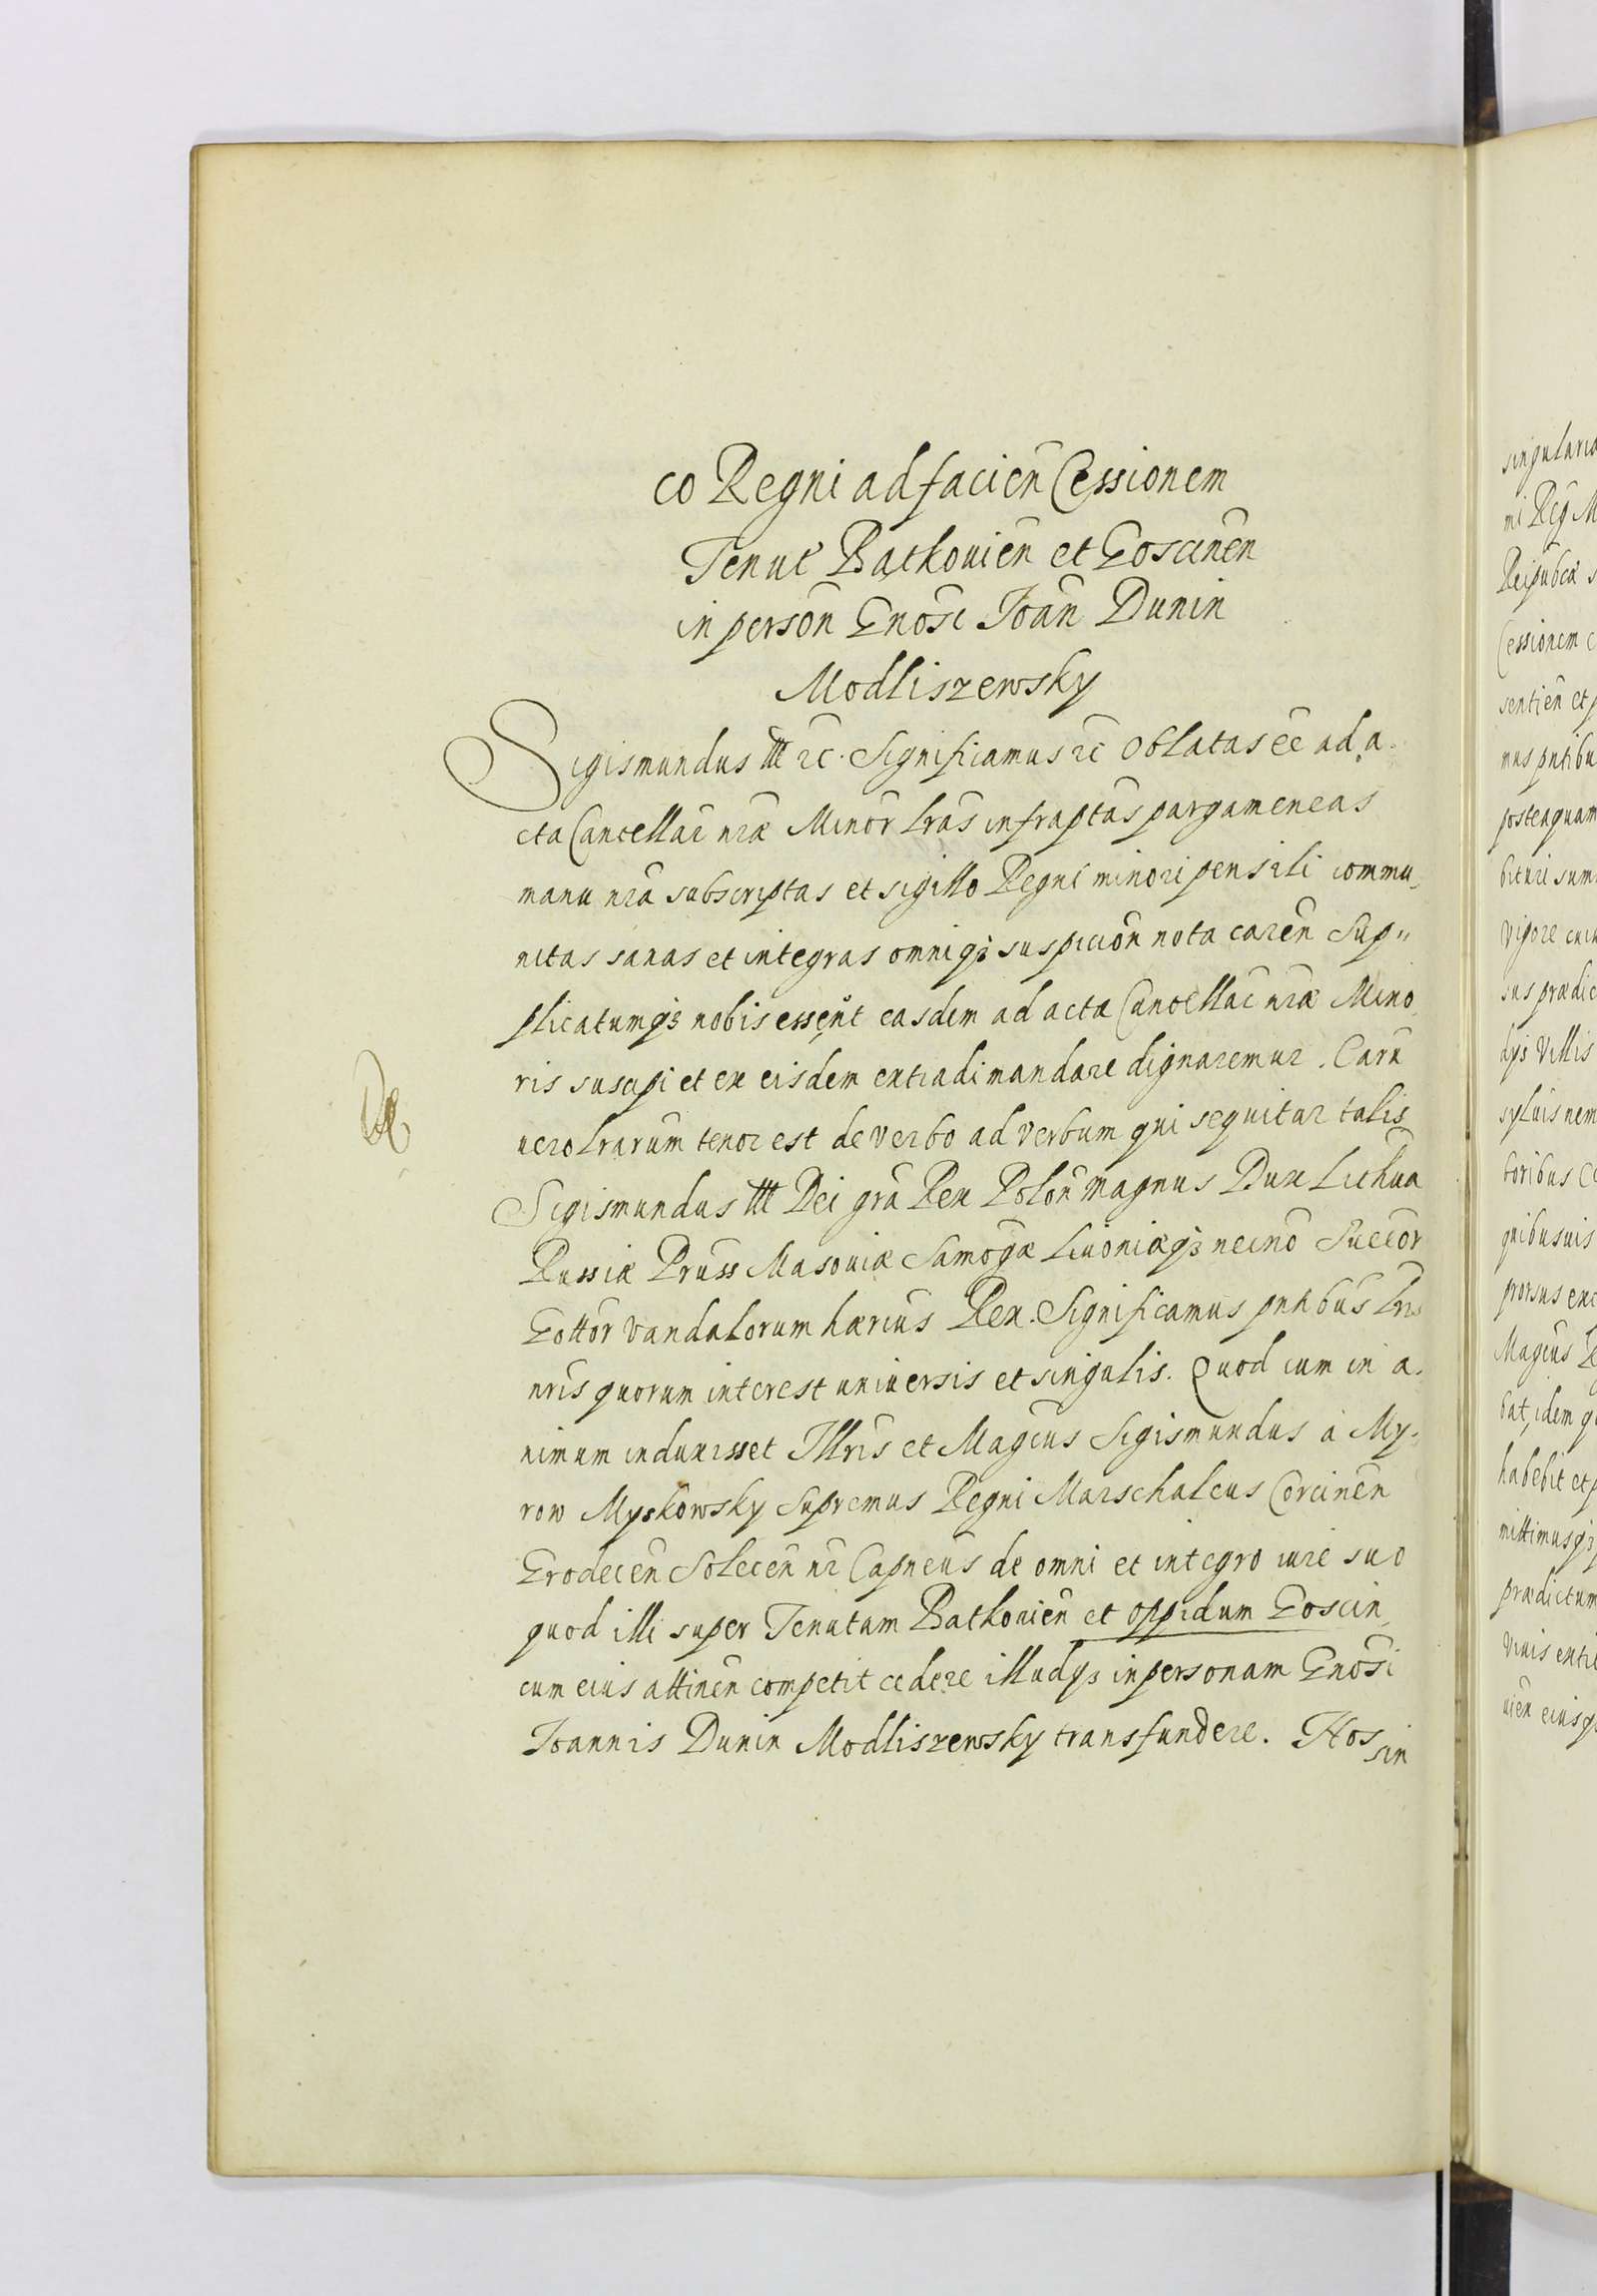 co Regni ad facień Cessionem
Tenut Bątkovień et Goscinen
in person Gnosi Joan Dunin
Modliszewsky
Sigismundus III etc. Significamus etc Oblatas ee ad a-
cta Cancellar nrae Minor lras infraptas pargameneas
manu nra subscriptas et sigillo Regni minori pensili commu-
nitas sanas et integras omniq; suspicion nota caren Sup-
plicatumq; nobis essent easdem ad acta Cancellar nrae Mino
ris suscipi et ex eisdem extradi mandare dignaremur. Earu
vero lrarum tenor est de verbo ad verbum qui sequitur talis
Sigismundus III Dei gra Rex Polon Magnus Dux Lithua
Russiae Pruss Masoviae Samogae Livoniaeq; necno Succor
Gottor Vandalorum haerius Rex. Significamus pntibus lris
nris quorum interest universis et singulis. Quod cum in a-
nimum induxisset Illris et Magcus Sigismundus a My-
row Myskowsky Supremus Regni Marschalcus Corcinen
Grodecen Solecen nr Capneus de omni et integro iure suo
quod illi super Tenutam Batkovien et oppidum Goscin
cum eius attinen competit cedere illudq; in personam Gnosi
Joannis Dunin Modliszewsky transfundere. Hos
sin
singularia
mi Reg M
Reipubcae
Cessionem
sentien et
mus pntibu
posteaquam
bituri sum
vigore
sus praedic
dys villis
sylvis nem
toribus
quibusvis
prorsus
Magcus
bat, idem
habebit et
mittimusq;
praedictum
vivis
eiusq;